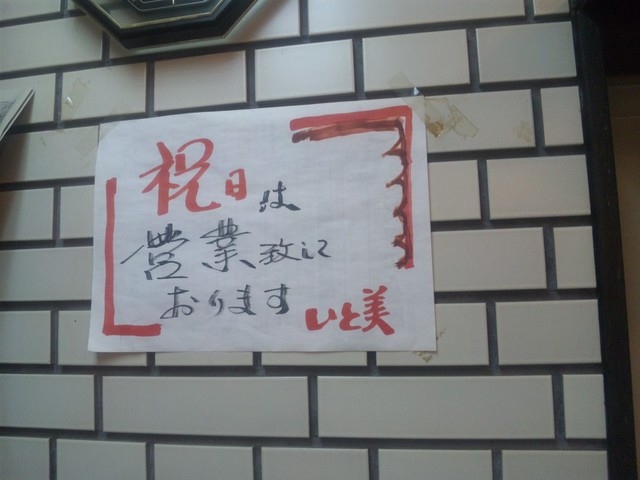 祝日は
営業致して
おります
いと美